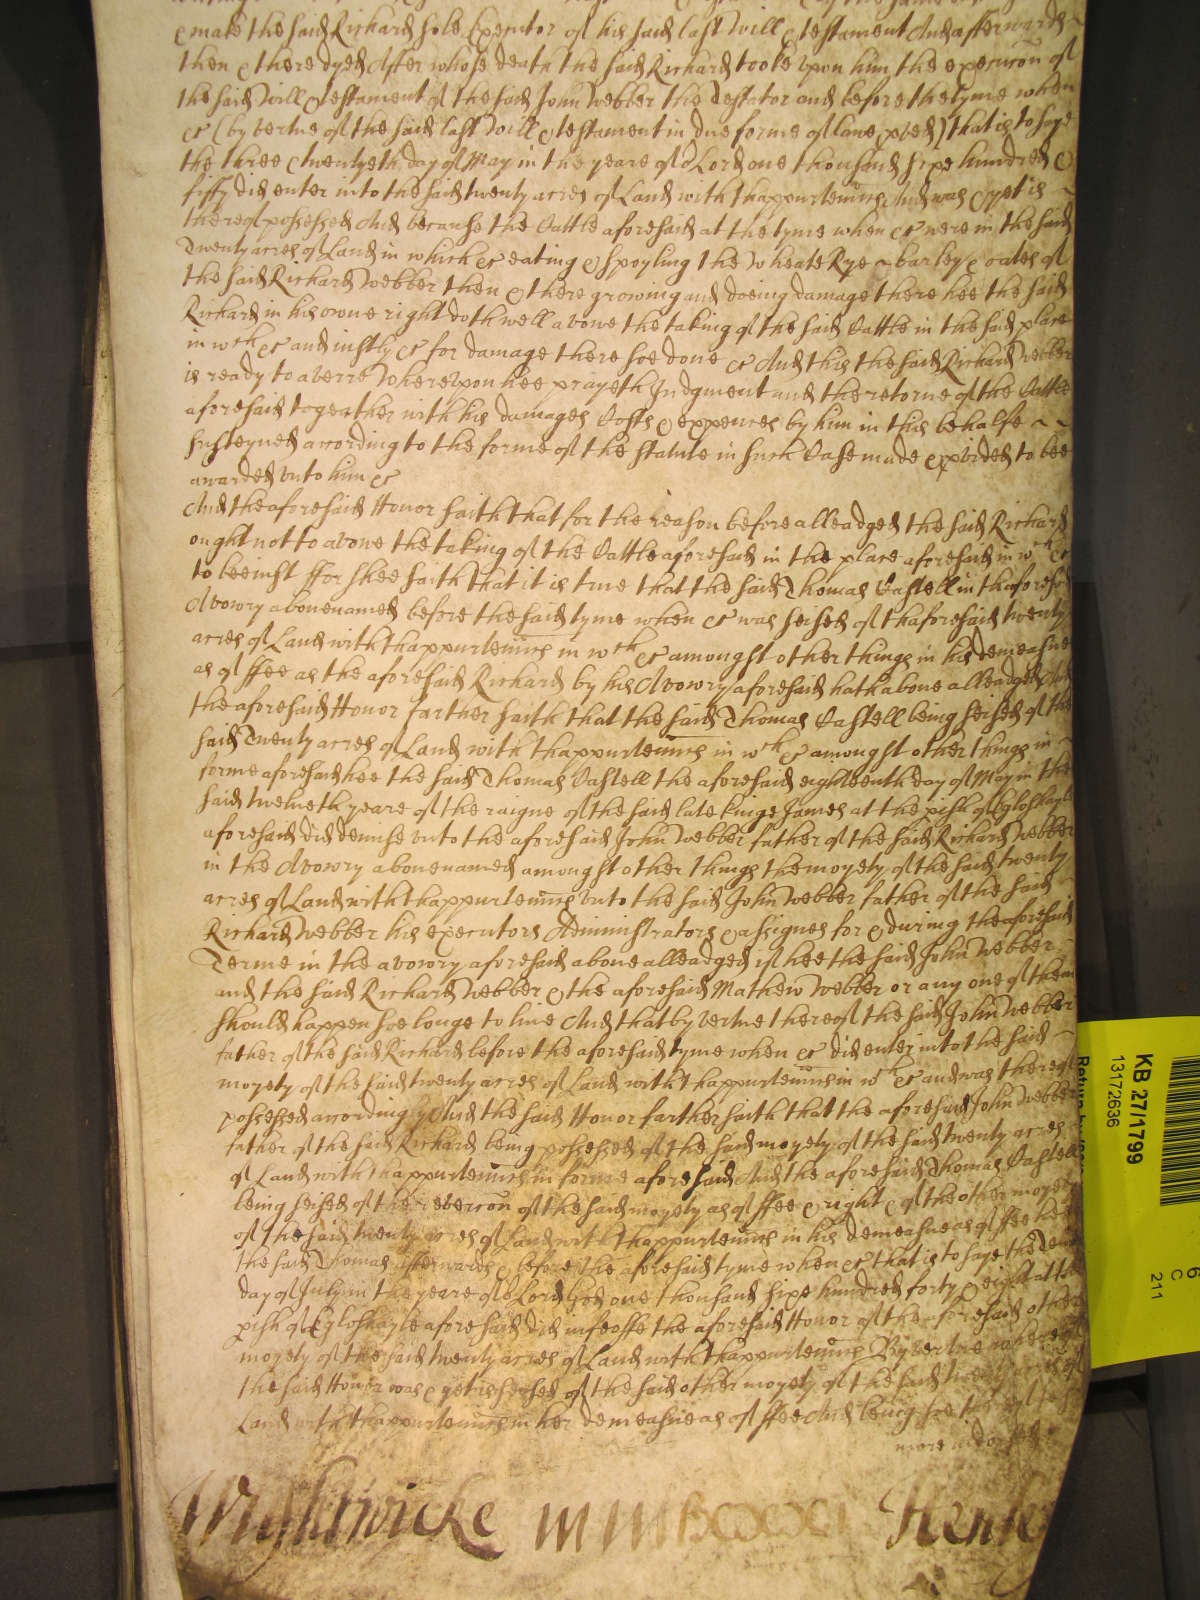 & make the said Richard sole Executor of his said last will & testament And afterwards
then & there dyed After whose death the said Richard tooke upon him the execucon of
the said will & testament of the said John Webber the Testator and before the tyme when
&c (by vertue of the said last will & testament in due forme of lawe pved) that is to saye
the three & twentyeth day of May in the yeare of or Lord one thousand sixe hundred &
fifty did enter into the said twenty acres of Land with thappurtennces And was & yet is
thereof possessed And because the Cattle aforesaid at the tyme when &c were in the said
Twenty acres of Land in which &c eating & spoyling the wheate Rye barley & oates of
the said Richard Webber then & there growing and doeing damage there hee the said
Richard in his owne right doth well avowe the taking of the said Cattle in the said place
in wch &c and iustly &c for damage there soe done &c And this the said Richard Webber
is ready to averre Whereupon hee prayeth Judgment and the retorne of the Cattle
aforesaid together with his damages Costs & expences by him in this behalfe
susteyned according to the forme of the statute in such Case made & pvided to bee
awarded unto him &c
And the aforesaid Honor saith that for the reason before alleadged the said Richard
ought not to avowe the taking of the Cattle aforesaid in the place aforesaid in wch &c
to bee iust ffor shee saith that it is true that the said Thomas Castell in thaforesaid
Avowry abovenamed before the said tyme when &c was seised of thaforesaid twenty
acres of Land with thappurtennces in wch &c amongst other things in his demeasne
as of ffee as the aforesaid Richard by his Avowry aforesaid hath above alleadged And
the aforesaid Honor farther saith that the said Thomas Castell being seised of the
said Twenty acres of Land with thappurtennces in wch &c amongst other things in
forme aforesaid hee the said Thomas Castell the aforesaid eighteenth day of May in the
said twelveth yeare of the raigne of the said late kinge James at the pish of Egloshayle
aforesaid did demise unto the aforesaid John Webber father of the said Richard Webber
in the Avowry abovenamed amongst other things the moyety of the said twenty
acres of Land with thappurtennces unto the said John Webber father of the said
Richard Webber his executors Administrators & assignes for & during the aforesaid
Terme in the avowry aforesaid above alleadged if hee the said John Webber
and the said Richard Webber & the aforesaid Mathew Webber or any one of them
should happen soe longe to live And that by vertue thereof the said John Webber
father of the said Richard before the aforesaid tyme when &c did enter into the said
moyety of the said twenty acres of Land with thappurtennces in wch &c and was thereof
possessed accordingly And the said Honor farther saith that the aforesaid John Webber
father of the said Richard being possessed of the said moyety of the said twenty acres
of Land with thappurtennces in forme aforesaid And the aforesaid Thomas Castell
being seised of the revercon of the said moyety as of ffee & right & of the other moyety
of the said twenty acres of Land with thappurtennces in his demeasne as of ffee hee
the said Thomas afterwards & before the aforesaid tyme when &c that is to saye the
day of July in the yeare of or Lord God one thousand sixe hundred forty & eight att the
pish of Egloshayle aforesaid did infeoffe the aforesaid Honor of the aforesaid other
moyety of the said twenty acres of Land with thappurtennces By vertue whereof
the said Honor was & yet is seised of the said other moyety of the said twenty acres of
Land with thappurtennces in her demeasne as of ffee And being soe
more
Wightwicke
KB 27/1799
13172636
Return by
6
C
211